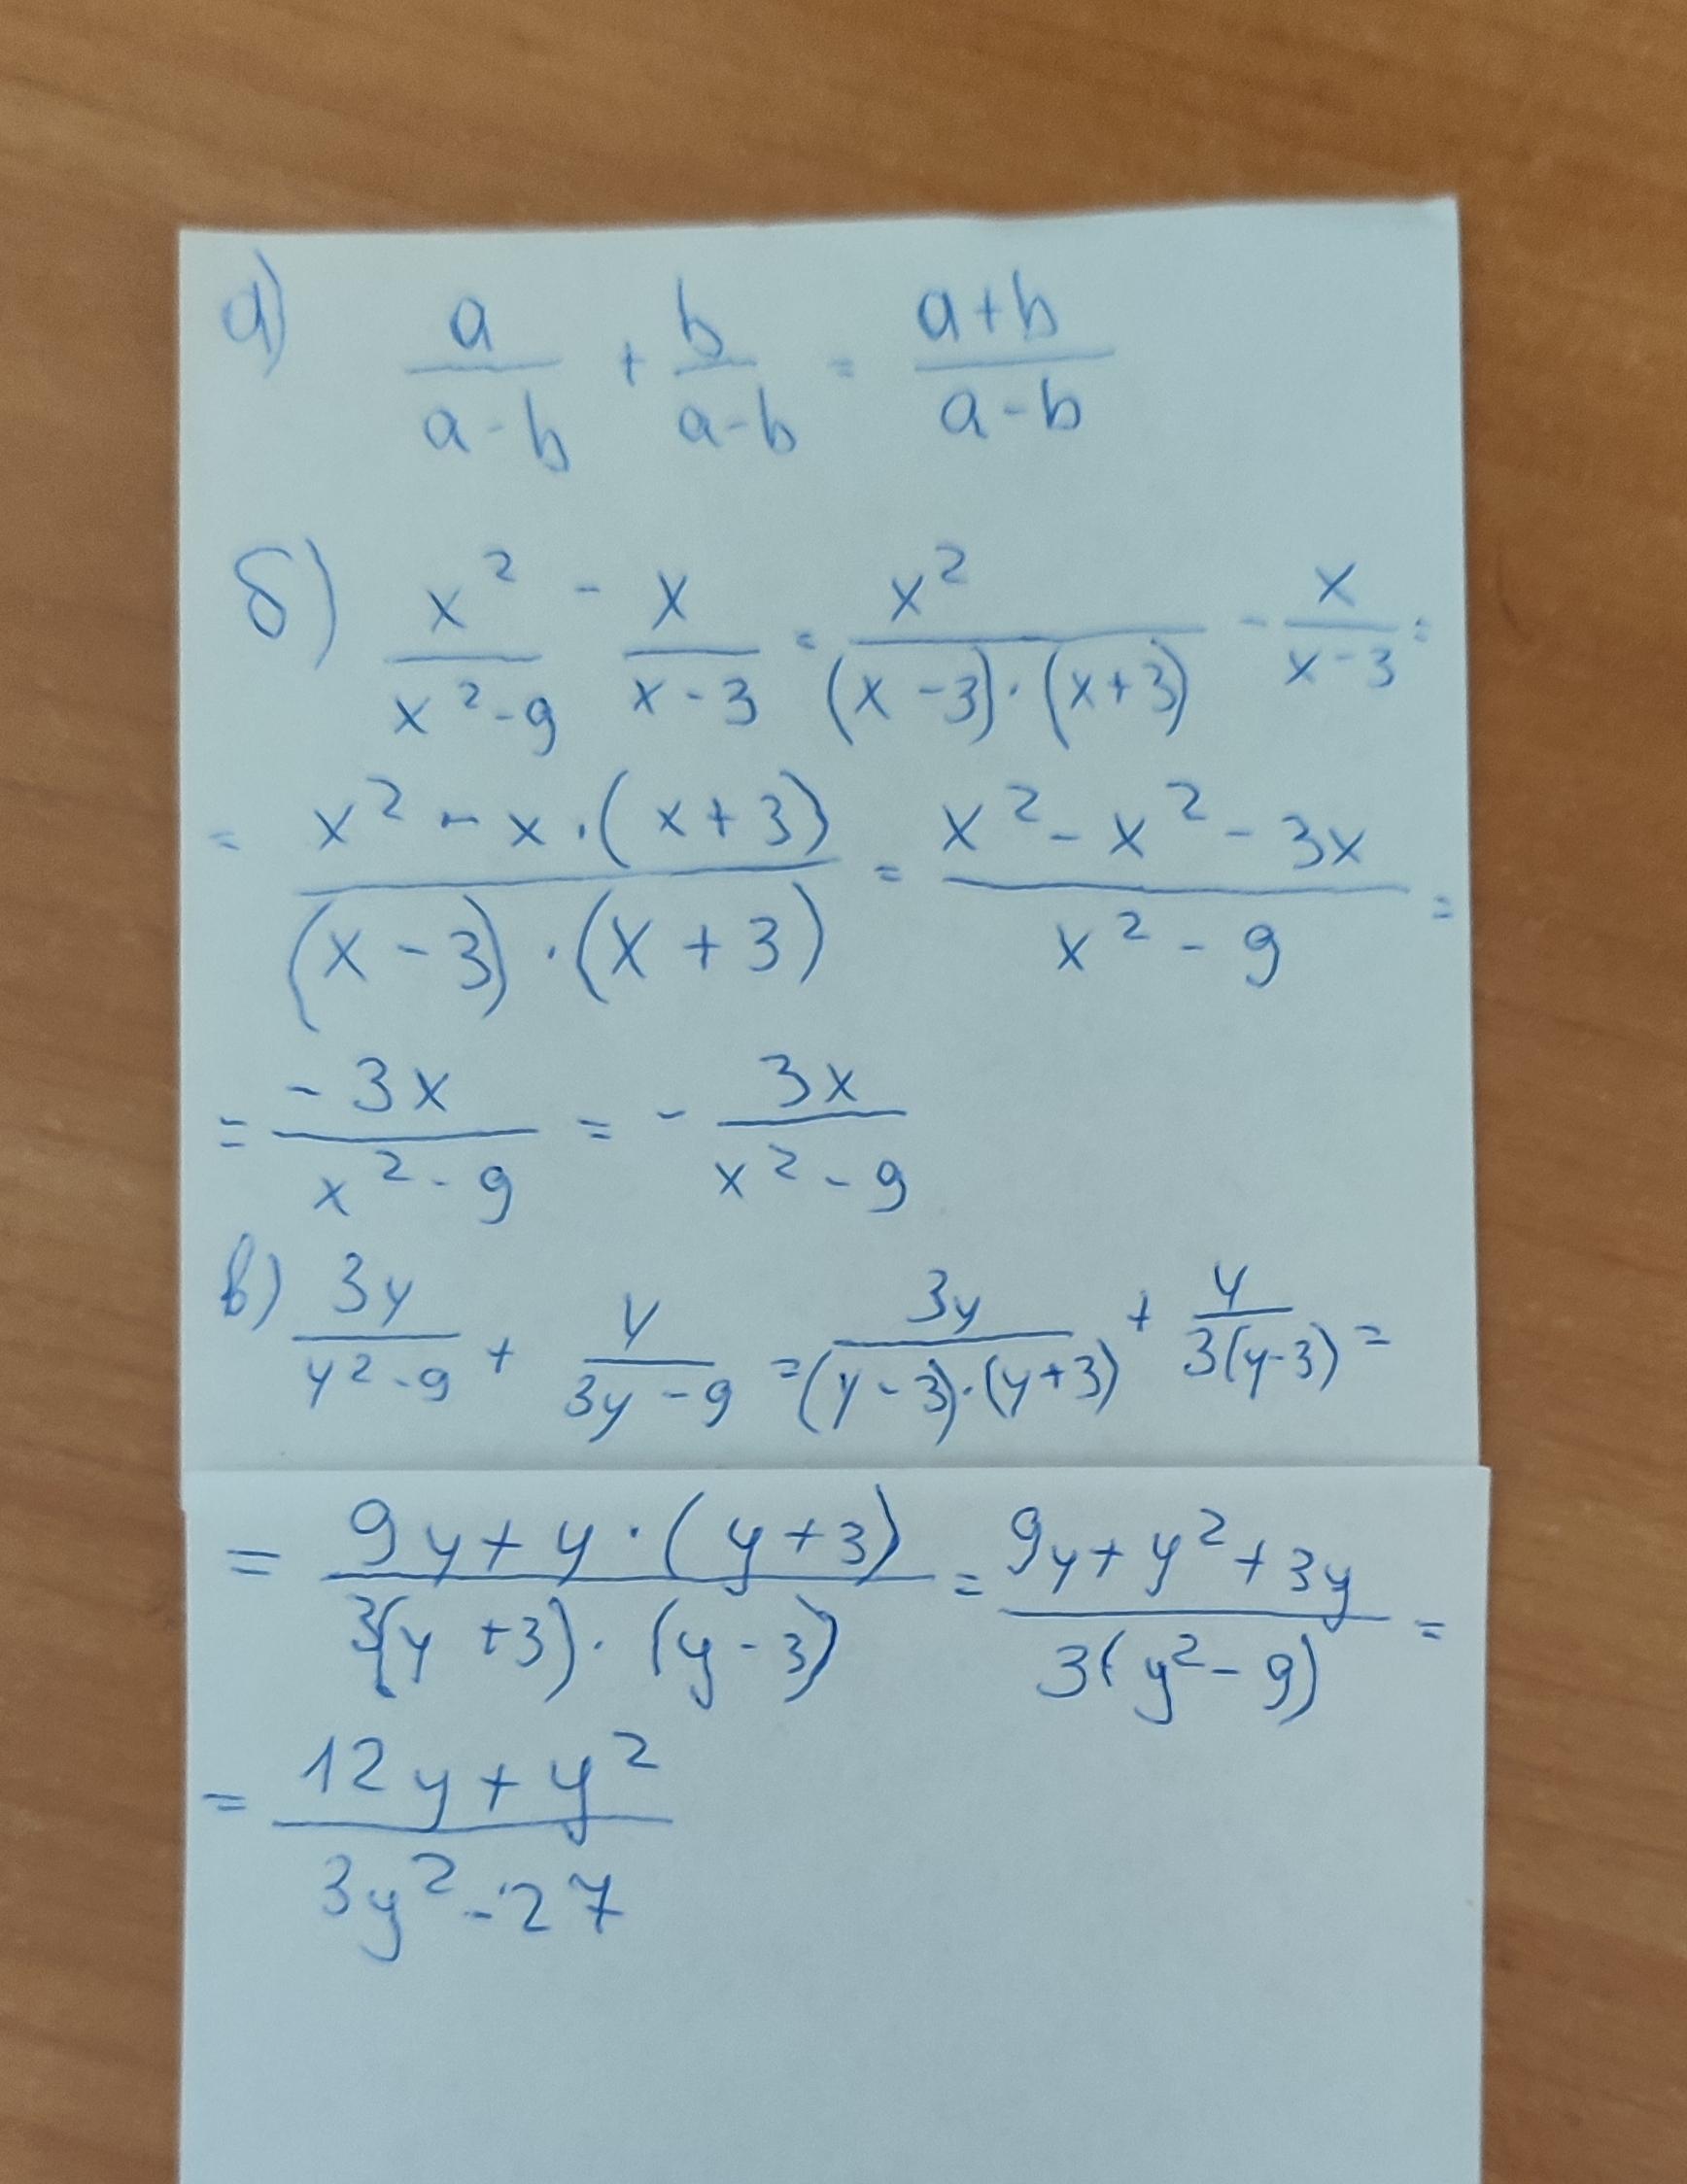 а) a/(a-b) + b/(a-b) = (a+b)/(a-b)
б) x²/(x²-9) - x/(x-3) = x²/((x-3)·(x+3)) - x/(x-3) =
= (x² - x·(x+3))/((x-3)·(x+3)) = (x² - x² - 3x)/(x²-9) =
= (-3x)/(x²-9) = - 3x/(x²-9)
в) 3y/(y²-9) + y/(3y-9) = 3y/((y-3)·(y+3)) + y/(3(y-3)) =
= (9y+y·(y+3))/(3(y+3)·(y-3)) = (9y+y²+3y)/(3(y²-9)) =
= (12y+y²)/(3y²-27)